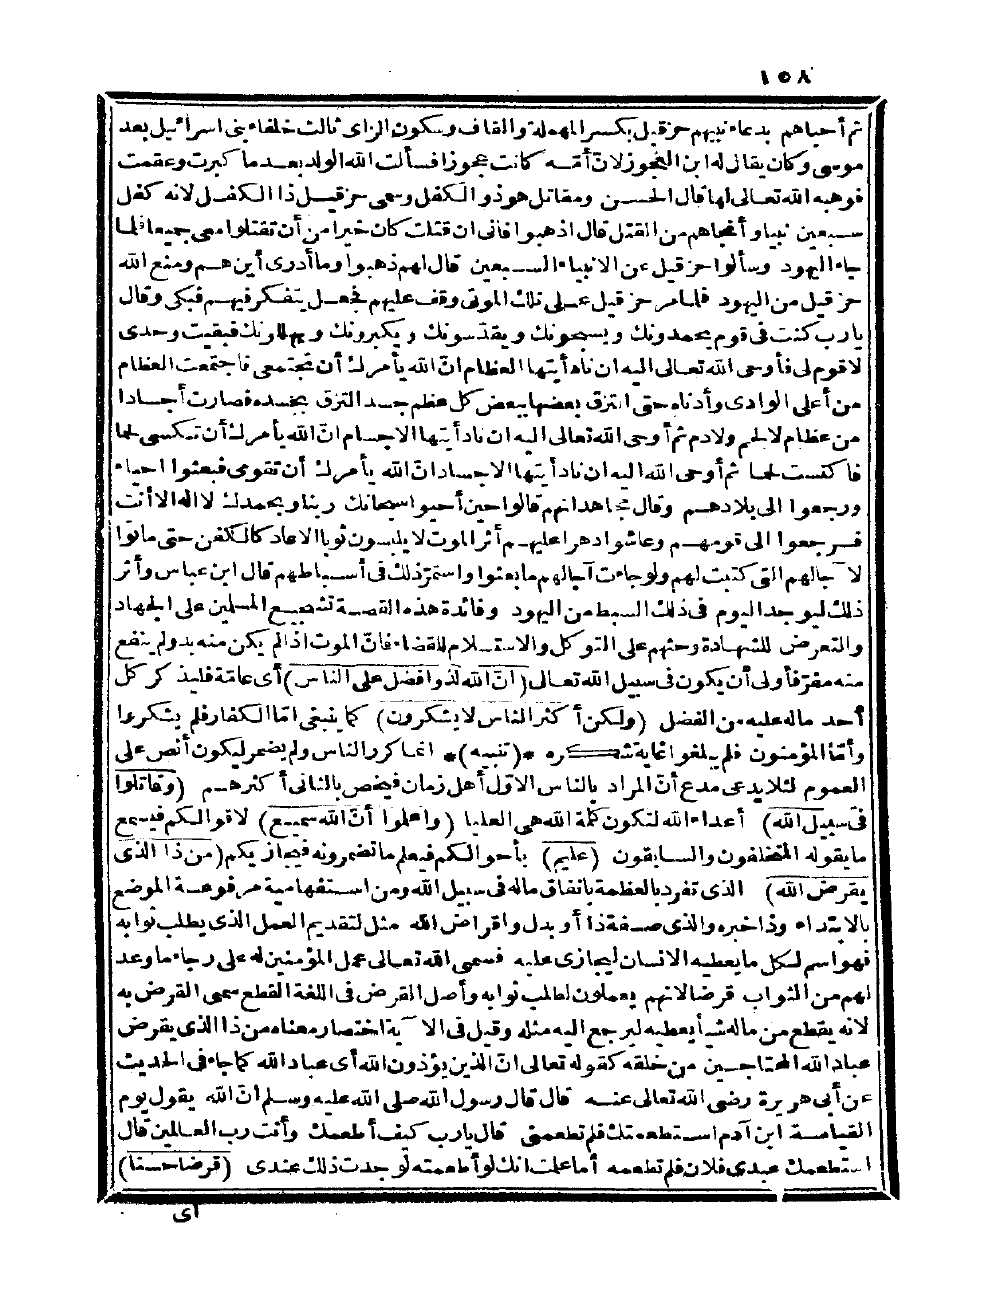 ١٥٨
ثم أحياهم بدعاء نبيهم حزقيل بكسر المهملة والقاف وسكون الزاى ثالث خلفاء بنى اسرائيل بعد
موسى وكان يقال له ابن العجوز لانّ أمّه كانت عجوزا فسألت الله الولد بعد ما كبرت وعقمت
فوهبه الله تعالى لها قال الحسن ومقاتل هو ذو الكفل وسمى حزقيل ذا الكفل لانه كفل
سبعين نبيا وأنجاهم من القتل قال اذهبوا فانى ان قتلت كان خيرا من أن تقتلوا معى جميعا فلما
جاء اليهود وسألوا حزقيل عن الانبياء السبعين قال لهم ذهبوا وما أدرى أين هم ومنع الله
حزقيل من اليهود فلما مر حزقيل على تلك الموتى وقف عليهم فجعل يتفكر فيهم فبكى وقال
يا رب كنت فى قوم يحمدونك ويسبحونك ويقدّسونك ويكبرونك ويهللونك فبقيت وحدى
لا قوم لى فأوحى الله تعالى اليه ان ناد أيتها العظام انّ الله يأمرك أن تجتمعى فاجتمعت العظام
من أعلى الوادى وأدناه حتى التزق بعضها ببعض كل عظم جسد التزق بجسده فصارت أجسادا
من عظام لا لحم ولا دم ثم أوحى الله تعالى اليه ان ناد أيتها الاجسام انّ الله يأمرك أن تكتسى لحما
فاكتست لحما ثم أوحى الله اليه ان ناد أيتها الاجساد انّ الله يأمرك أن تقومى فبعثوا احياء
ورجعوا الى بلادهم وقال مجاهد انهم قالوا حين أحيوا سبحانك ربنا وبحمدك لا اله الا أنت
فرجعوا الى قومهم وعاشوا دهرا عليهم أثر الموت لا يلبسون ثوبا الا عاد كالكفن حتى ماتوا
لآجالهم التى كتبت لهم ولو جاءت آجالهم ما بعثوا واستمرّ ذلك فى أسباطهم قال ابن عباس وأثر
ذلك ليوجد اليوم فى ذلك السبط من اليهود وفائدة هذه القصة تشجيع المسلمين على الجهاد
والتعرض للشهادة وحثهم على التوكل والاستسلام للقضاء فانّ الموت اذا لم يكن منه بد ولم ينفع
منه مفرّ فأولى أن يكون فى سبيل الله تعالى (انّ الله لذو افضل على الناس) أى عامّة فليذكر كل
أحد ماله عليه من الفضل (ولكن أكثر الناس لا يشكرون) كما ينبغى امّا الكفار فلم يشكروا
وأمّا المؤمنون فلم يبلغوا غاية شكره *(تنبيه)* انما كرر الناس ولم يضمر ليكون أنص على
العموم لئلا يدعى مدع أنّ المراد بالناس الاول أهل زمان فيخص بالثانى أكثرهم (وقاتلوا
فى سبيل الله) أعداء الله لتكون كلمة الله هى العليا (واعلموا أنّ الله سميع) لاقوالكم فيسمع
ما يقوله المتخلفون والسابقون (عليم) بأحوالكم فيعلم ما تضمرونه فيجازيكم (من ذا الذى
يقرض الله) الذى تفرد بالعظمة بانفاق ماله فى سبيل الله ومن استفهامية مرفوعة الموضع
بالابتداء وذا خبره والذى صفة ذا أو بدل واقراض الله مثل لتقديم العمل الذى يطلب ثوابه
فهو اسم لكل ما يعطيه الانسان ليجازى عليه فسمى الله تعالى عمل المؤمنين له على رجاء ما وعد
لهم من الثواب قرضا لانهم يعملون لطالب ثوابه وأصل القرض فى اللغة القطع سمى القرض به
لانه يقطع من ماله شيأ يعطيه ليرجع اليه مثله وقيل فى الآية اختصار معناه من ذا الذى يقرض
عباد الله المحتاجين من خلقه كقوله تعالى انّ الذين يؤذون الله أى عباد الله كما جاء فى الحديث
عن أبى هريرة رضى الله تعالى عنه قال قال رسول الله صلى الله عليه وسلم انّ الله يقول يوم
القيامة ابن آدم استطعمتك فلم تطعمنى قال يا رب كيف أطعمك وأنت رب العالمين قال
استطعمك عبدى فلان فلم تطعمه أما علمت انك لو أطعمته لوجدت ذلك عندى (قرضا حسنا)
أى